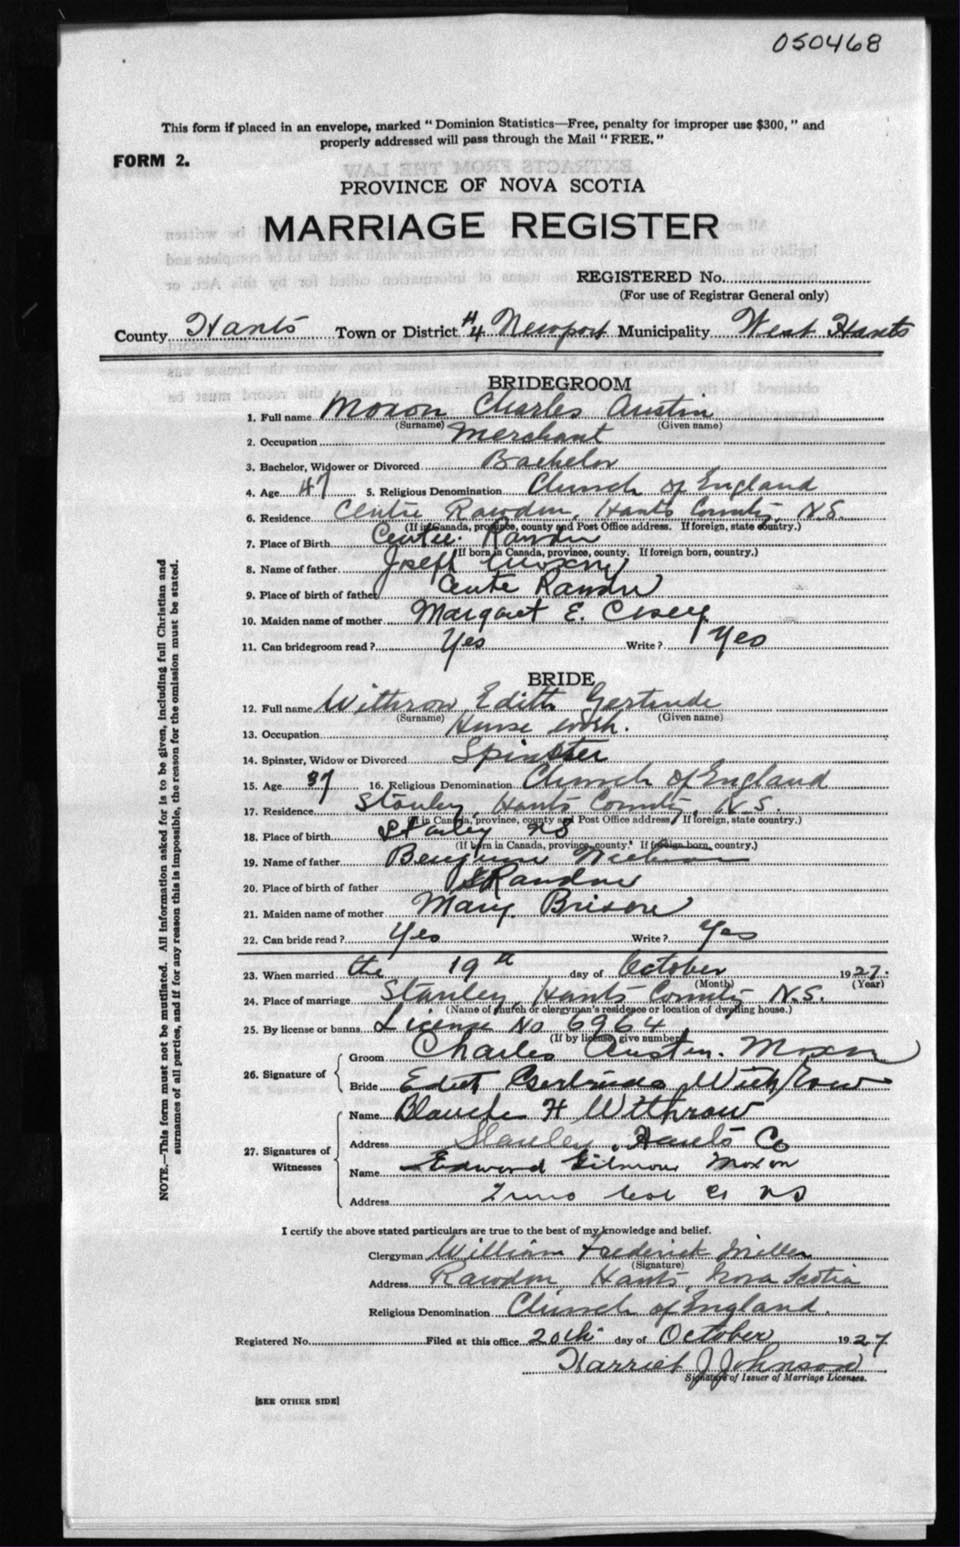 050468
This form if placed in an envelope, marked "Dominion Statistics—Free, penalty for improper use $300," and
properly addressed will pass through the Mail "FREE."
FORM 2.
PROVINCE OF NOVA SCOTIA
MARRIAGE REGISTER
REGISTERED No.
(For use of Registrar General only)
County Hants Town or District #4 Newport Municipality West Hants
BRIDEGROOM
1. Full name Moxon Charles Austin
(Surname) (Given name)
2. Occupation Merchant
3. Bachelor, Widower or Divorced Bachelor
4. Age 47 5. Religious Denomination Church of England
6. Residence Centre Rawdon, Hants County, N.S.
(If in Canada, province, county and Post Office address. If foreign, state country.)
7. Place of Birth Centre Rawdon
(If born in Canada, province, county. If foreign born, country.)
8. Name of father Joseph Moxon
9. Place of birth of father Centre Rawdon
10. Maiden name of mother Margaret E. Casey
11. Can bridegroom read? Yes Write? Yes
BRIDE
12. Full name Withrow Edith Gertrude
(Surname) (Given name)
13. Occupation House work.
14. Spinster, Widow or Divorced Spinster
15. Age 37 16. Religious Denomination Church of England
17. Residence Stanley, Hants County, N.S.
(If in Canada, province, county and Post Office address. If foreign, state country.)
18. Place of birth Stanley NS
(If born in Canada, province, county. If foreign born, country.)
19. Name of father Withrow
20. Place of birth of father Rawdon
21. Maiden name of mother Mary Brison
22. Can bride read? Yes Write? Yes
23. When married the 19th day of October 1927.
(Month) (Year)
24. Place of marriage Stanley, Hants County N.S.
(Name of church or clergyman's residence or location of dwelling house.)
25. By license or banns License No 6964
(If by license, give number)
26. Signature of
Groom Charles Austin Moxon
Bride Edith Gertrude Withrow
27. Signatures of Witnesses
Name Blanche H Withrow
Address Stanley, Hants Co
Name Edward Gilmour Moxon
Address Truro Col Co NS
I certify the above stated particulars are true to the best of my knowledge and belief.
Clergyman William Frederick Miller
(Signature)
Address Rawdon, Hants, Nova Scotia
Religious Denomination Church of England.
Registered No. Filed at this office 20th day of October 1927
Harriet J Johnson
Signature of Issuer of Marriage Licenses.
[SEE OTHER SIDE]
NOTE.—This form must not be mutilated. All information asked for is to be given, including full Christian and
surnames of all parties, and if for any reason this is impossible, the reason for the omission must be stated.